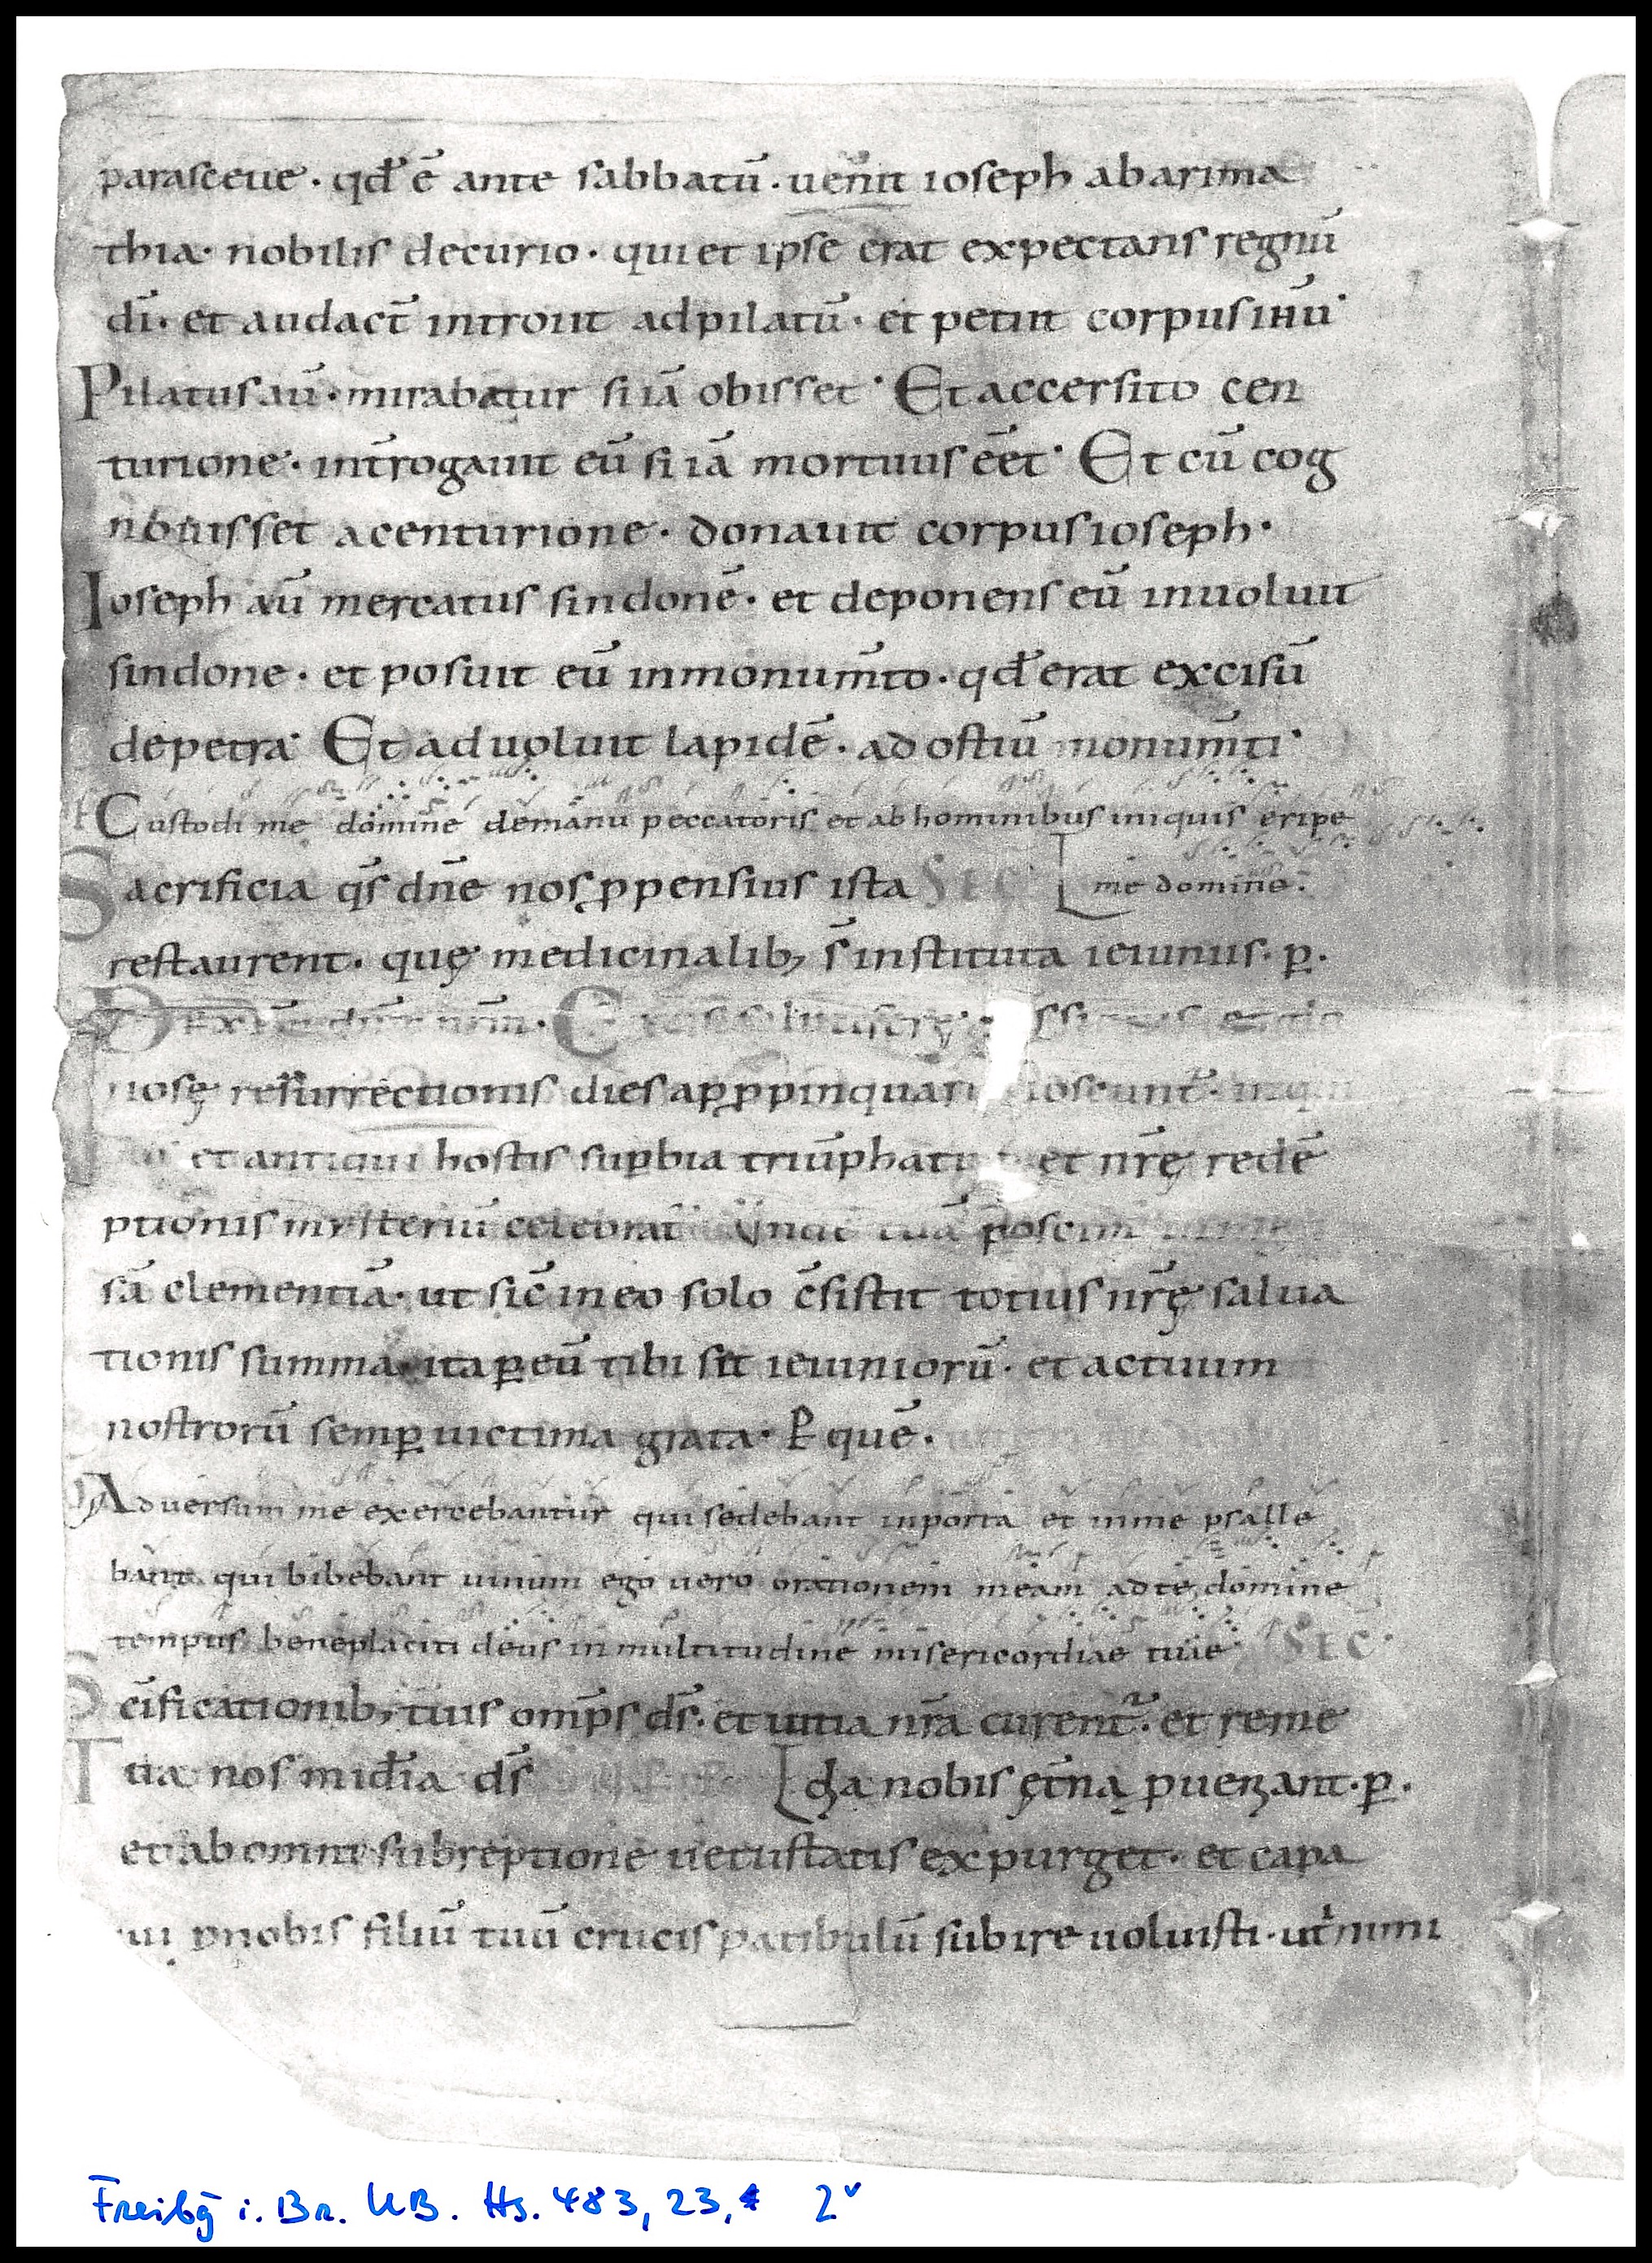 parasceue. qđ ē ante sabbatū. uenit ioseph ab arima
thia. nobilis decurio. qui et ipse erat expectans regnū
dī. et audact̄ introiit ad pilatū. et petiit corpus ihū.
Pilatus aū. mirabatur si iā obisset. Et accersito cen
turione. int̄rogauit eū si iā mortuus eēt. Et cū cog
nouisset a centurione. donauit corpus ioseph.
Ioseph aū mercatus sindonē. et deponens eū inuoluit
sindone. et posuit eū in monum̄to. qđ erat excisū
de petra. Et aduoluit lapidē. ad ostiū monum̄ti.
Custodi me domine de manu peccatoris et ab hominibus iniquis eripe
me domine.
Sacrificia q̄s dn̄e nos ꝓpensius ista SEC
restaurent. quę medicinalib; s̄ instituta ieiuniis. ꝑ.
nosę resurrectionis dies apꝓpinquare noscunt̄. in qui
et antiqui hostis suꝑbia triūphat et nr̄ę redē
ptionis mysteriū celebrat̄ Unde tuā poscim
sā clementiā. ut sic̄ in eo solo c̄sistit totius nr̄ę salua
tionis summa. ita ꝑ eū tibi sit ieiuniorū. et actuum
nostrorū semꝑ uictima grata. P quē.
Aduersum me exercebantur qui sedebant in porta et in me psalle
bant qui bibebant uinum ego uero orationem meam ad te domine
tempus beneplaciti deus in multitudine misericordiae tuae SEC.
Scīficationib; tuis omp̄s ds̄. et uitia nr̄a curent̄. et reme
dia nobis ęt̄na ꝓueniant. ꝑ.
Tua nos mīdia ds̄
et ab omni subreptione uetustatis expurget. et capa
ui ꝓ nobis filiū tuū crucis patibulū subire uoluisti. ut inimi
Freibg i. Br. UB. Hs. 483, 23, 2v